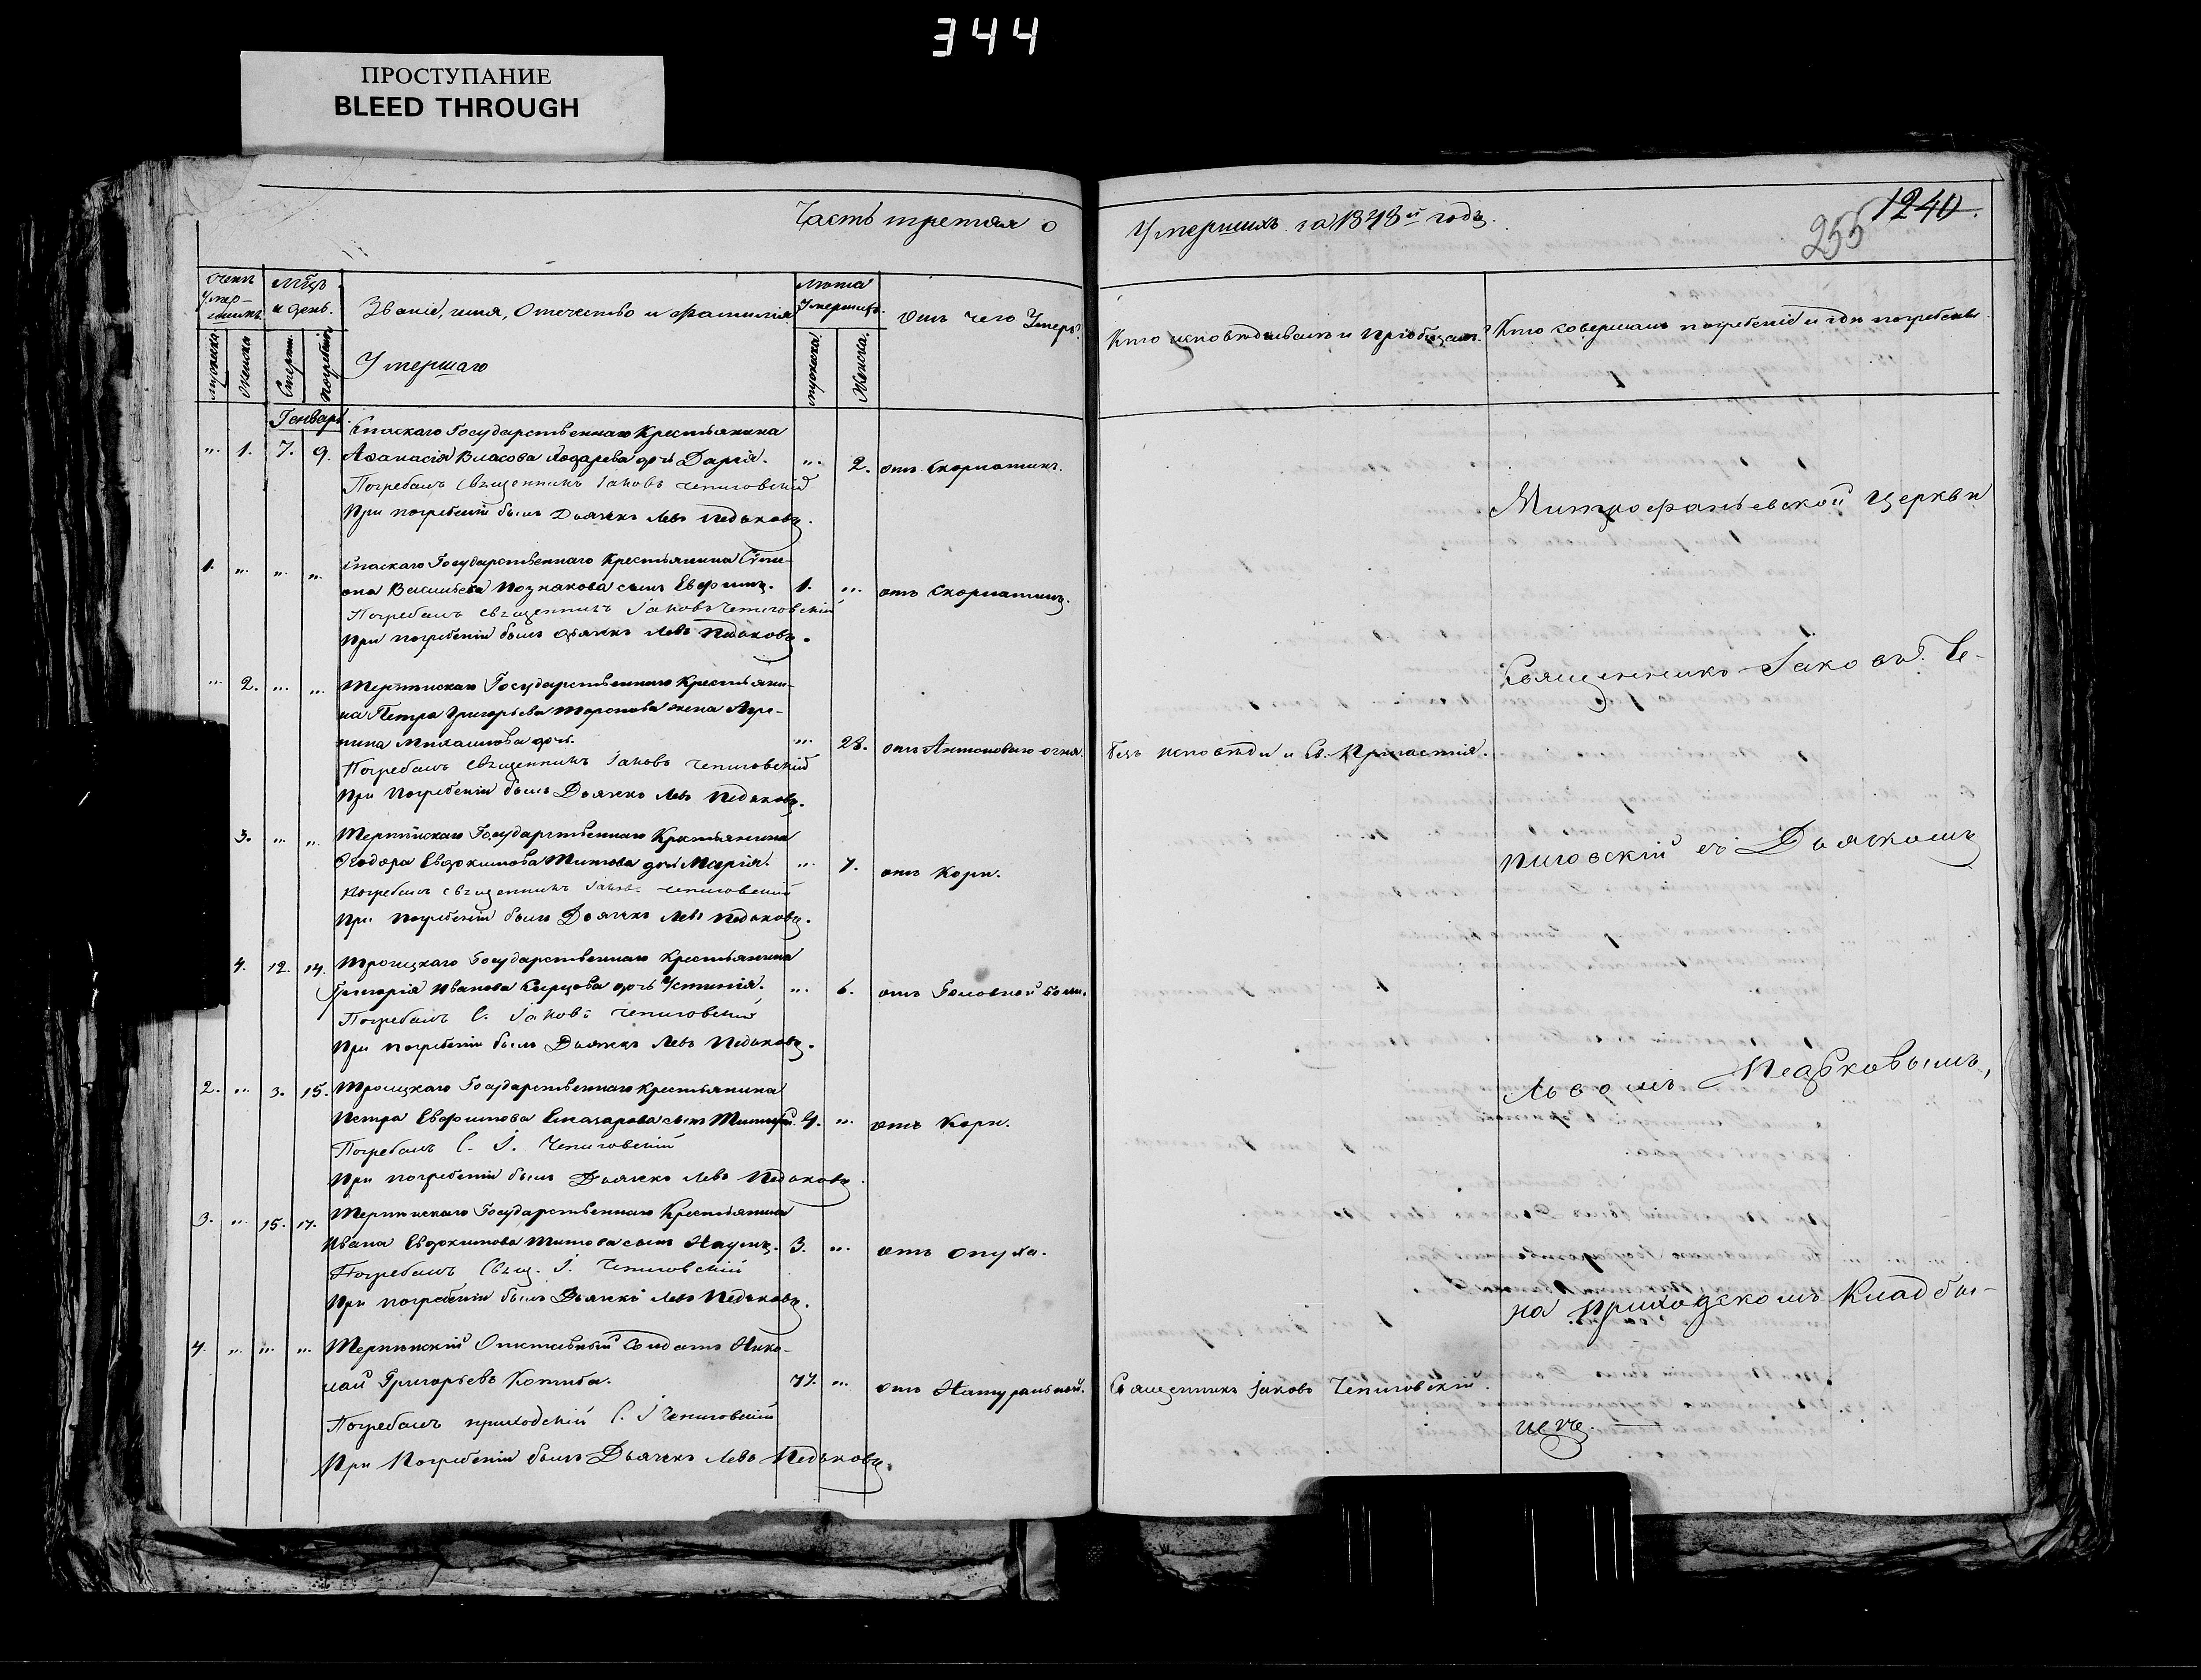 344
ПРОСТУПАНИЕ
BLEED THROUGH
Часть третая о
Умершихъ за 1848й годъ.
255
1240.
Счетъ Умер-шихъ
Мцъ и день.
Званіе, имя, Отечество и фамилія
Умершаго
Лѣта Умершихъ.
Отъ чего Умеръ.
Кто исповѣдывалъ и пріобщалъ.
Кто совершалъ погребеніе и гдѣ погребены.
мужска
женска
Смерти.
Погребен
мужска
Женска.
Генварь.
Спаскаго Государственнаго Крестьянина
" 1. 7. 9. Аѳанасія Власова дочь Дарія. " 2. отъ Скорлатины.
Погребалъ Священникъ Іаковъ Чепиговскій
При погребеніи былъ Дьячекъ Левъ Педьковъ.
1. " " " Спаскаго Государственнаго Крестьянина Сте-
Васильева Познакова сынъ Евфимъ. 1. " отъ Скорлатины.
Погребалъ священникъ Іаковъ Чепиговскій
При погребеніи былъ дьячекъ Левъ Педьковъ.
" 2. " " Терпѣнскаго Государственнаго Крестьяни-
на Петра Григорьева жена Агре-
пина Михайлова дочь. " 28. отъ Антоноваго огня. безъ исповѣди и Св. Причастія.
Погребалъ Священникъ Іаковъ Чепиговскій
При Погребеніи былъ Дьячекъ Левъ Педьковъ.
3. " " Терпѣнскаго Государственнаго Крестьянина
Ѳеодора Евдокимова Титова дочь Марія. " 7. отъ Кори.
Погребалъ священникъ Іаковъ Чепиговскій
При Погребеніи былъ Дьячекъ Левъ Педьковъ.
4. 12. 14. Троицкаго Государственнаго Крестьянина
Григорія Иванова дочь Устинія. " 6. отъ Головной боли.
Погребалъ С. Іаковъ Чепиговскій
При погребеніи былъ Дьячекъ Левъ Педьковъ.
2. " 3. 15. Троицкаго Государственнаго Крестьянина
Петра Евфимова сынъ Тимофей. 4. " отъ Кори.
Погребалъ С. І. Чепиговскій
При погребеніи былъ Дьячекъ Левъ Педьковъ
3. " 15. 17. Терпѣнскаго Государственнаго Крестьянина
Ивана Евдокимова Титова сынъ Наумъ. 3. " отъ опуха.
Погребалъ Свящ. І. Чепиговскій
При погребеніи былъ Дьячекъ Левъ Педьковъ.
4. " " " Терпѣнскій Отставный Солдатъ Нико-
лай Григорьевъ Котиба. 77. " отъ Натуральной. Священникъ Іаковъ Чепиговскій.
Погребалъ приходскій С. І Чепиговскій
При Погребеніи былъ Дьячекъ Левъ Педьковъ.
Митрофаньевской Церкви
Священникъ Іаковъ Че-
пиговскій съ Дьячкомъ
Львомъ Педьковымъ,
на приходскомъ Кладби-
щѣ.